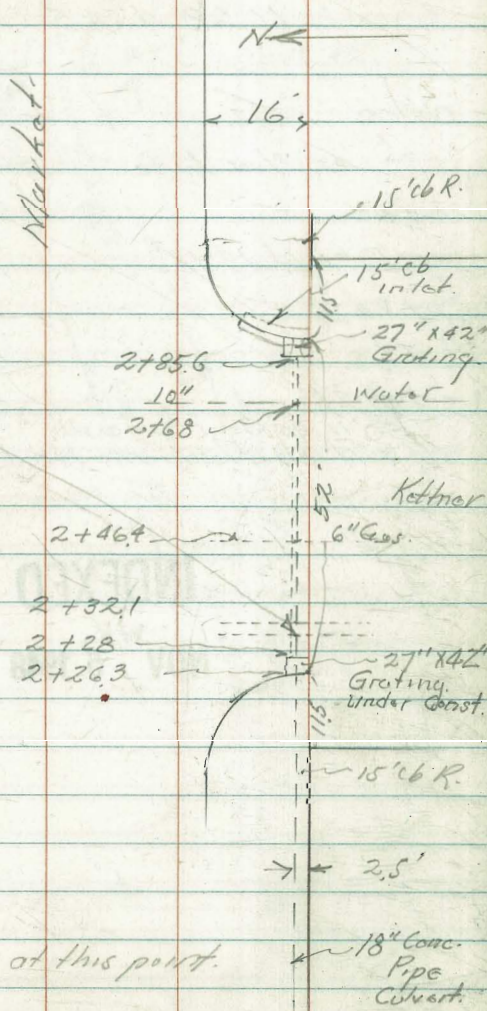 N
16'
Market
15' cb R.
15' cb
Inlet.
11.5
27" x 42"
Grating
2+85.6
10"
Water
2+68
52'
Kettner
2+46.4
6" Gas.
2+32.1
2+28
2+26.3
27" x 42"
Grating.
Under Const.
11.5
15' cb R.
2.5'
at this point.
18" Conc.
Pipe
Culvert.